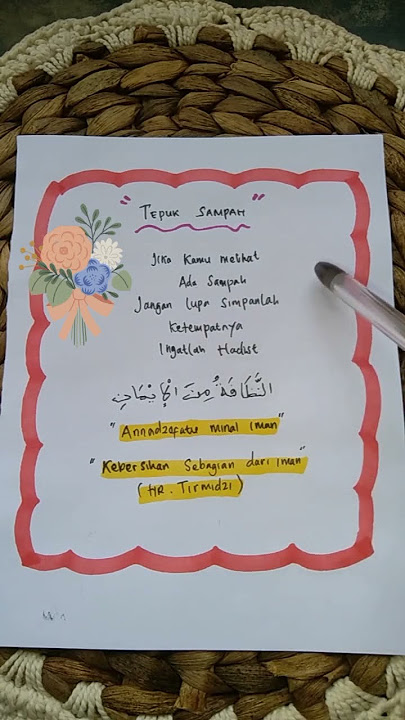 "TEPUK SAMPAH"
Jika Kamu melihat
Ada Sampah
Jangan lupa Simpanlah
Ketempatnya
Ingatlah Hadist
النَّظَافَةُ مِنَ الْإِيْمَانِ
"Annadzofatu minal iman"
"Kebersihan Sebagian dari iman"
(HR. Tirmidzi)